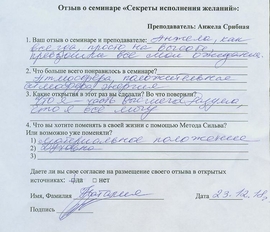 Отзыв о семинаре «Секреты исполнения желаний»:
Преподаватель: Анжела Срибная
1. Ваш отзыв о семинаре и преподавателе: Анжела, как
всегда, просто на высоте,
превзошла все мои ожидания.
2. Что больше всего понравилось в семинаре?
Атмосфера положительная
3. Какие открытия в этот раз вы сделали? Во что поверили?
Что я - часть Высшего Разума,
что я всё могу
4. Что вы хотите поменять в своей жизни с помощью Метода Сильва?
Или возможно уже поменяли?
1) материальное положение
2)
3)
Даете ли вы свое согласие на размещение своего отзыва в открытых
источниках: да нет
Имя, Фамилия Наталия Дата 23.12.18
Подпись